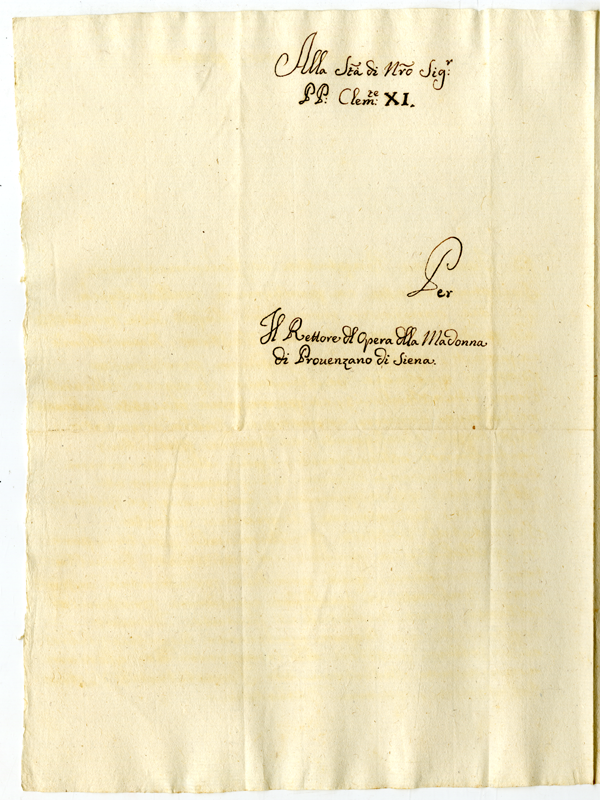 Alla Stã di Nrõ Sigʳ:
PP: Clemᶻᵉ: XI.
Per
Il Rettore dl Opera dlla Madonna
di Prouenzano di Siena.